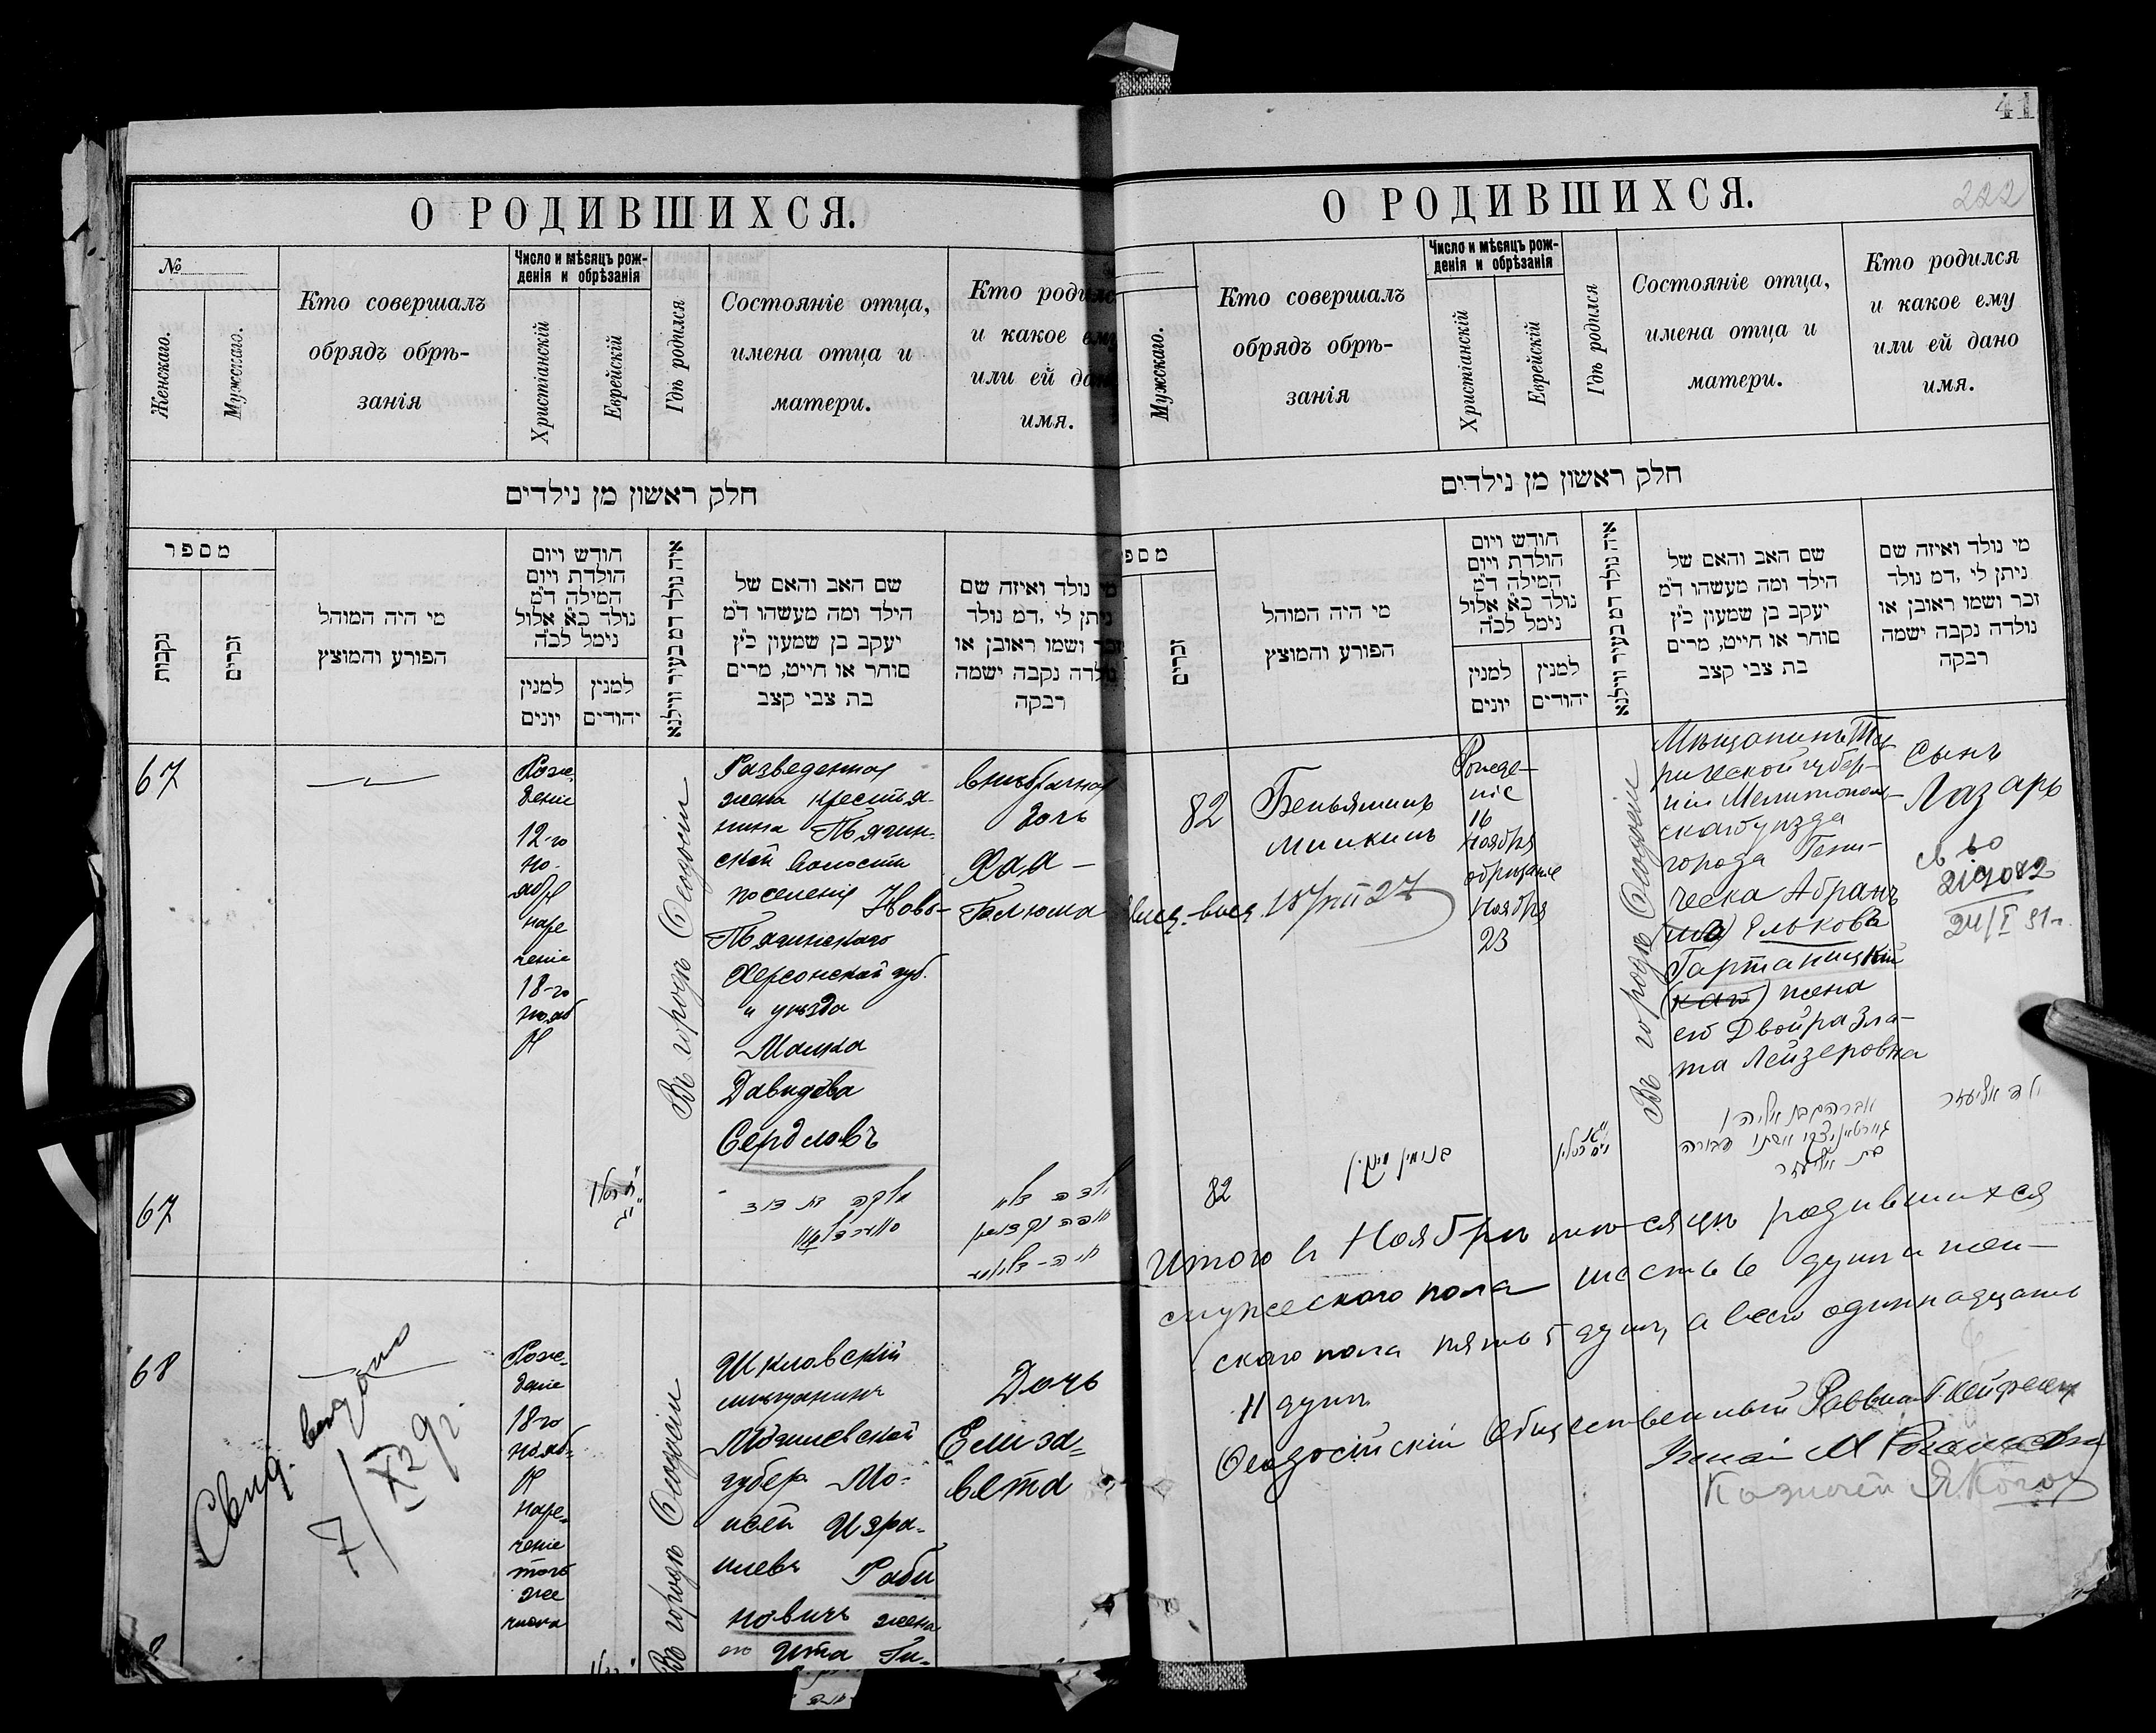 О РОДИВШИХСЯ.
№
Женскаго.
Мужскаго.
Кто совершалъ
обрядъ обрѣ-
занія
Число и мѣсяцъ рож-
денія и обрѣзанія
Христіанскій
Еврейскій
Гдѣ родился
Состояніе отца,
имена отца и
матери.
Кто родился
и какое ему
или ей дано
имя.
חלק ראשון מן נילדים
מספר
נקבות
זכרים
מי היה המוהל
הפורע והמוצץ
חודש ויום
הולדת ויום
המילה ד״מ
נולד כ״א אלול
נימל לכ״ה
למנין
יונים
למנין
יהודים
איה נולד דמ בעיר ווילנא
שם האב והאם של
הילד ומה מעשהו ד״מ
יעקב בן שמעון כ״ץ
סוחר או חייט, מרים
בת צבי קצב
מי נולד ואיזה שם
ניתן לי ,דמ נולד
זכר ושמו ראובן או
נולדה נקבה ישמה
רבקה
67
Рож-
деніе
12-го
но-
ября
наре
ченіе
18-го
нояб
ря
Въ городѣ Ѳеодосіи
Разведенная
жена крестья-
нина
ской волости
поселенія Ново-
Херсонской губ.
и уѣзда
Малка
Давидова
Внѣбрачная
дочь
Хая -
67
מלקה בת דוד
68
Свид. выдано
Рож-
деніе
18-го
нояб-
ря
наре-
ченіе
того
же
числа
Въ городѣ Ѳеодосіи
Шкловскій
мѣщанинъ
Могилевской
губер. Мо-
исей Изра-
илевъ Раби
новичъ жена
его Ита Ги-
Дочь
Елиза-
вета
41
О РОДИВШИХСЯ.
222
Мужскаго.
Кто совершалъ
обрядъ обрѣ-
занія
Число и мѣсяцъ рож-
денія и обрѣзанія
Христіанскій
Еврейскій
Гдѣ родился
Состояніе отца,
имена отца и
матери.
Кто родился
и какое ему
или ей дано
имя.
חלק ראשון מן נילדים
מספ
זכרים
מי היה המוהל
הפורע והמוצץ
חודש ויום
הולדת ויום
המילה ד״מ
נולד כ״א אלול
נימל לכ״ה
למנין
יונים
למנין
יהודים
איה נולד דמ בעיר ווילנא
שם האב והאם של
הילד ומה מעשהו ד״מ
יעקב בן שמעון כ״ץ
סוחר או חייט, מרים
בת צבי קצב
מי נולד ואיזה שם
ניתן לי ,דמ נולד
זכר ושמו ראובן או
נולדה נקבה ישמה
רבקה
82
Беньяминъ
Мишкинъ
Рожде-
ніе
16
Ноября
обрѣзаніе
Ноября
23
Въ городѣ Ѳеодосіи
Мѣщанинъ Тав
рической губер-
ніи Мелитополь-
скаго уѣзда
города Гени-
ческа Абрамъ
Ельковъ
Гартаницкій
жена
его Двойра Зла-
та Лейзеровна
Сынъ
Лазарь
24/I 31 г.
82
בנימין מישקין
אברהם בן אליהו
אשתו דבורה
בת אליעזר
ילד אליעזר
Итого въ Ноябрѣ мѣсяцѣ родившихся
мужескаго пола шесть 6 душъ и жен-
скаго пола пять 5 душъ, а всего одиннадцать
11 душъ.
Ѳеодосійскій Общественный Раввинъ
Казначей